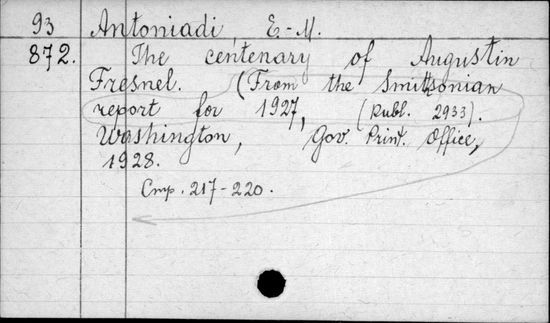 93 Antoniadi, E.-M.
872. The centenary of Augustin
Fresnel. (From the Smithsonian
report for 1927, (Publ. 2933).
Washington, Gov. Print. Office,
1928.
Стр. 217-220.